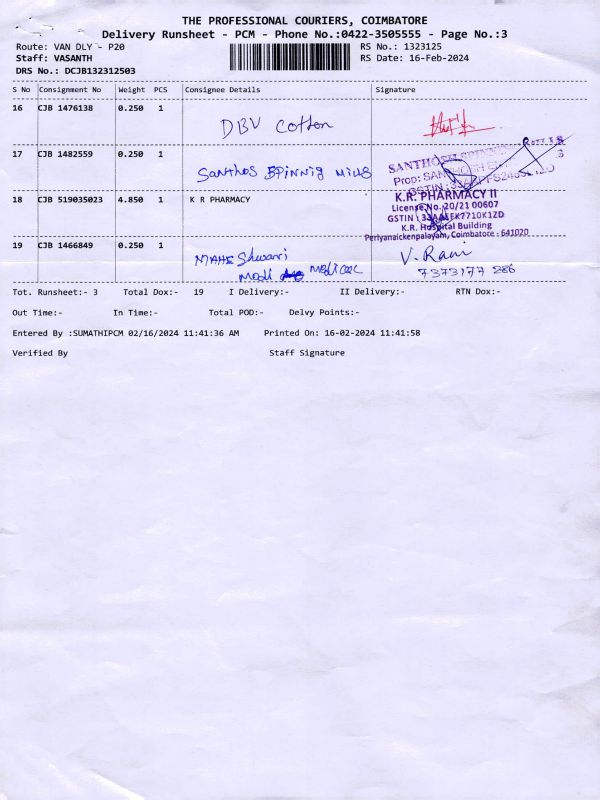 THE PROFESSIONAL COURIERS, COIMBATORE
Delivery Runsheet - PCM - Phone No.:0422-3505555 - Page No.:3
Route: VAN DLY - P20 RS No.: 1323125
Staff: VASANTH RS Date: 16-Feb-2024
DRS No.: DCJB132312503
S No Consignment No Weight PCS Consignee Details Signature
16 CJB 1476138 0.250 1 DBV Cotton
17 CJB 1482559 0.250 1 Santhos Spinnig Mills
SANTHOSH SPINNING
Prop: 
GSTIN :
18 CJB 519035023 4.850 1 K R PHARMACY
K.R. PHARMACY II
License No. 20/21 00607
GSTIN : 33AALFK7710K1ZD
K.R. Hospital Building
Periyanaickenpalayam, Coimbatore - 641020
19 CJB 1466849 0.250 1 MAHE Shwari V. Rani
Medical 7373177 286
Tot. Runsheet:- 3 Total Dox:- 19 I Delivery:- II Delivery:- RTN Dox:-
Out Time:- In Time:- Total POD:- Delvy Points:-
Entered By :SUMATHIPCM 02/16/2024 11:41:36 AM Printed On: 16-02-2024 11:41:58
Verified By Staff Signature